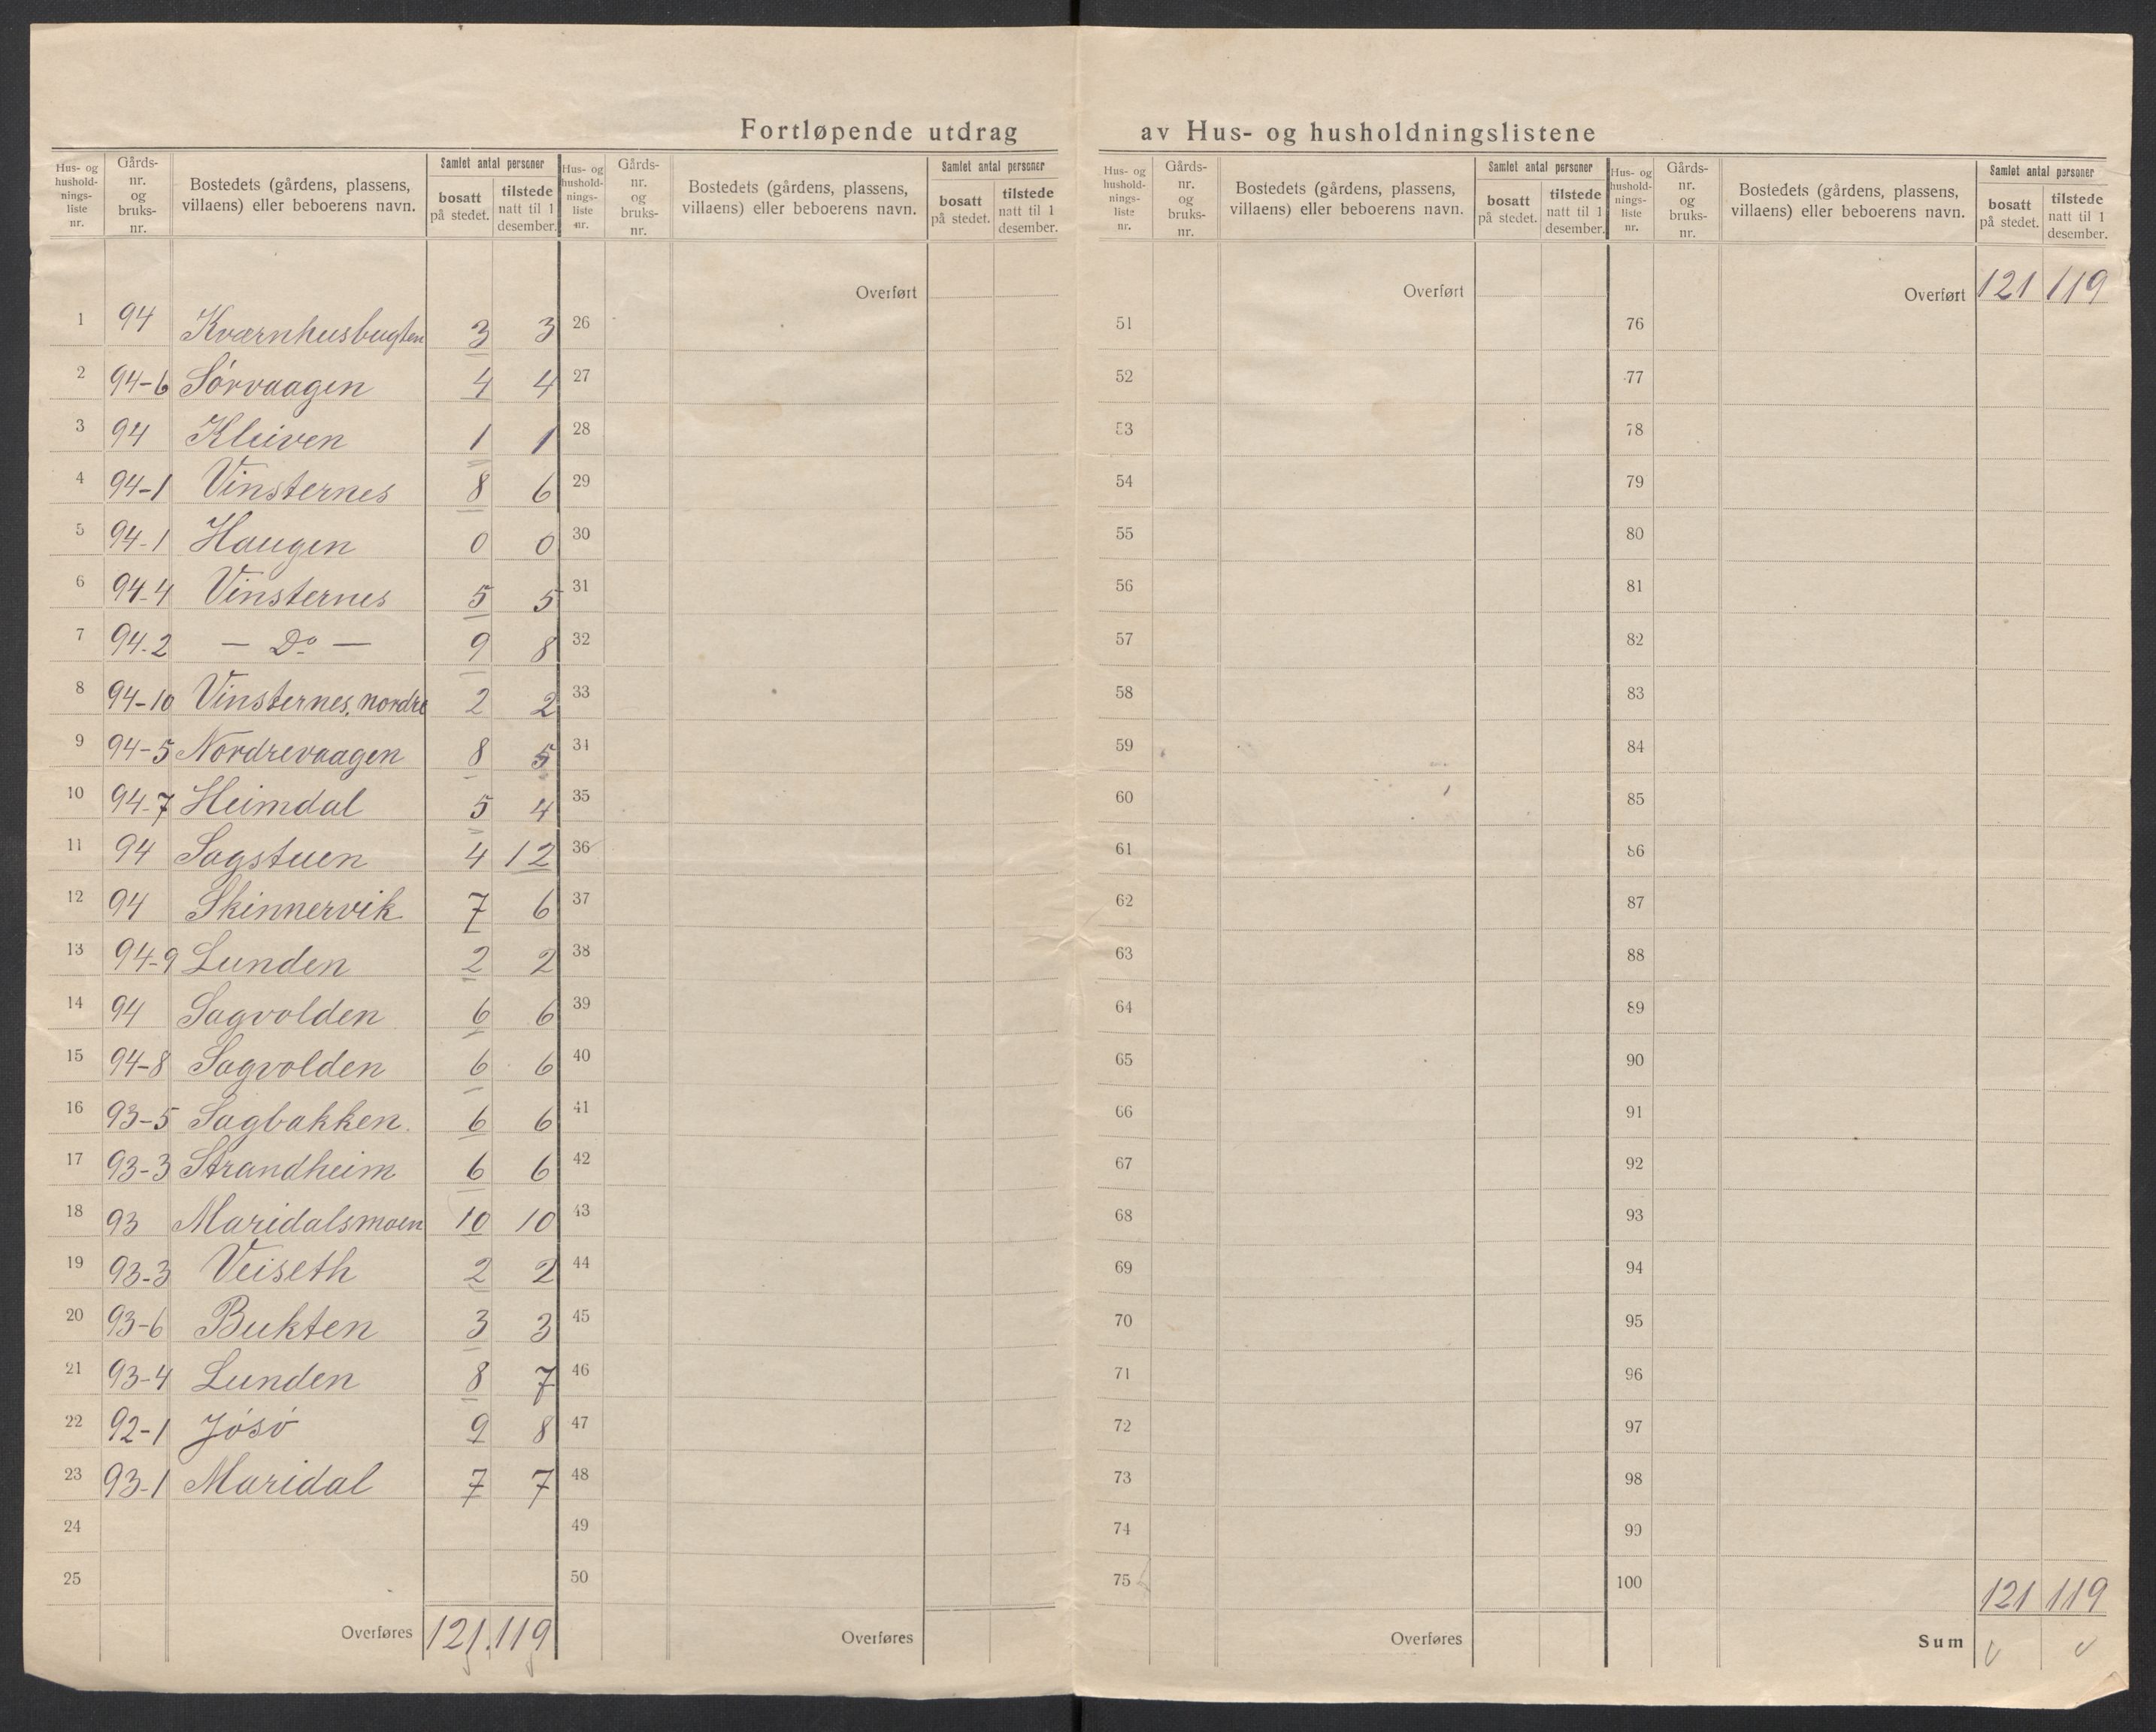 Fortløpende utdrag av Hus- og husholdningslistene
Hus- og hushold-nings-liste nr. Gårds-nr. og bruks-nr. Bostedets (gårdens, plassens, villaens) eller beboerens navn. Samlet antal personer bosatt på stedet. tilstede natt til 1 desember.
Hus- og hushold-nings-liste nr. Gårds-nr. og bruks-nr. Bostedets (gårdens, plassens, villaens) eller beboerens navn. Samlet antal personer bosatt på stedet. tilstede natt til 1 desember.
Hus- og hushold-nings-liste nr. Gårds-nr. og bruks-nr. Bostedets (gårdens, plassens, villaens) eller beboerens navn. Samlet antal personer bosatt på stedet. tilstede natt til 1 desember.
Hus- og hushold-nings-liste nr. Gårds-nr. og bruks-nr. Bostedets (gårdens, plassens, villaens) eller beboerens navn. Samlet antal personer bosatt på stedet. tilstede natt til 1 desember.
Overført Overført Overført 121 119
1 94 Kværnhusbugten 3 3 26 51 76
2 94-6 Sørvaagen 4 4 27 52 77
3 94 Kleiven 1 1 28 53 78
4 94-1 Vinsternes 8 6 29 54 79
5 94-1 Haugen 0 0 30 55 80
6 94-4 Vinsternes 5 5 31 56 81
7 94-2 — Do — 9 8 32 57 82
8 94-10 Vinsternes, nordre 2 2 33 58 83
9 94-5 Nordrevaagen 8 5 34 59 84
10 94-7 Heimdal 5 4 35 60 85
11 94 Sagstuen 4 12 36 61 86
12 94 Skinnervik 7 6 37 62 87
13 94-9 Lunden 2 2 38 63 88
14 94 Sagvolden 6 6 39 64 89
15 94-8 Sagvolden 6 6 40 65 90
16 93-5 Sagbakken. 6 6 41 66 91
17 93-3 Strandheim 6 6 42 67 92
18 93 Maridalsmoen 10 10 43 68 93
19 93-3 Veiseth 2 2 44 69 94
20 93-6 Bukten 3 3 45 70 95
21 93-4 Lunden 8 7 46 71 96
22 92-1 Jøsø 9 8 47 72 97
23 93-1 Maridal 7 7 48 73 98
24 49 74 99
25 50 75 100
121 119
Overføres 121. 119 Overføres Overføres Sum